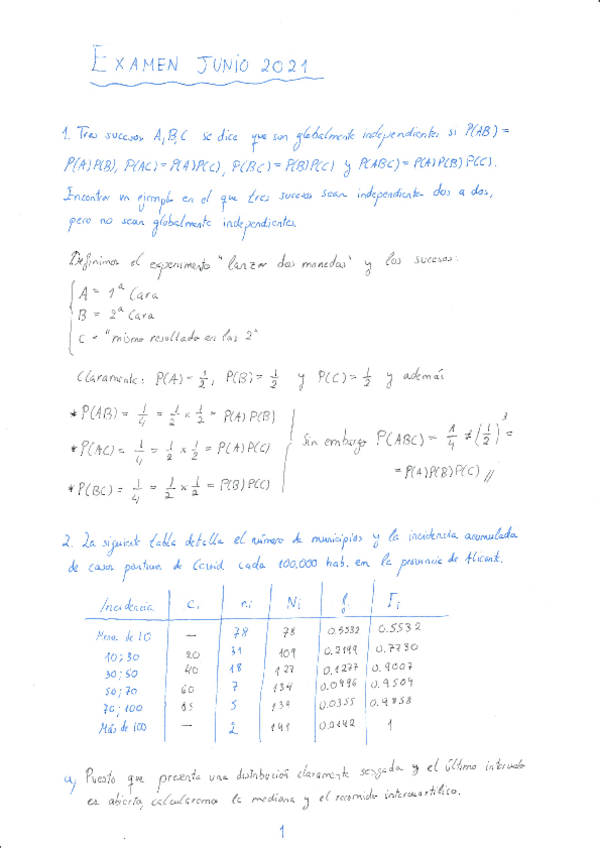 EXAMEN JUNIO 2021
1. Tres sucesos A, B, C se dice que son globalmente independientes si P(AB) =
P(A)P(B), P(AC)=P(A)P(C), P(BC)=P(B)P(C) y P(ABC)=P(A)P(B)P(C).
Encontrar un ejemplo en el que tres sucesos sean independientes dos a dos,
pero no sean globalmente independientes
Definimos el experimento "lanzar dos monedas" y los sucesos:
A = 1ª Cara
B = 2ª Cara
C = "mismo resultado en las 2"
Claramente: P(A)=1/2, P(B)=1/2 y P(C)=1/2 y además
* P(AB) = 1/4 = 1/2 × 1/2 = P(A)P(B)
* P(AC) = 1/4 = 1/2 × 1/2 = P(A)P(C)
* P(BC) = 1/4 = 1/2 × 1/2 = P(B)P(C)
Sin embargo P(ABC) = 1/4 ≠ (1/2)³ =
= P(A)P(B)P(C) //
2. La siguiente tabla detalla el número de municipios y la incidencia acumulada
de casos por Covid cada 100.000 hab. en la provincia de Alicante.
Incidencia ci ni Ni fi Fi
Menos de 10 — 78 78 0.5532 0.5532
10;30 20 31 109 0.2199 0.7730
30;50 40 18 127 0.1277 0.9007
50;70 60 7 134 0.0496 0.9504
70;100 85 5 139 0.0355 0.9858
Más de 100 — 2 141 0.0142 1
a) Puesto que presenta una distribución claramente sesgada y el último intervalo
es abierto, calcularemos la mediana y el recorrido intercuartílico.
1